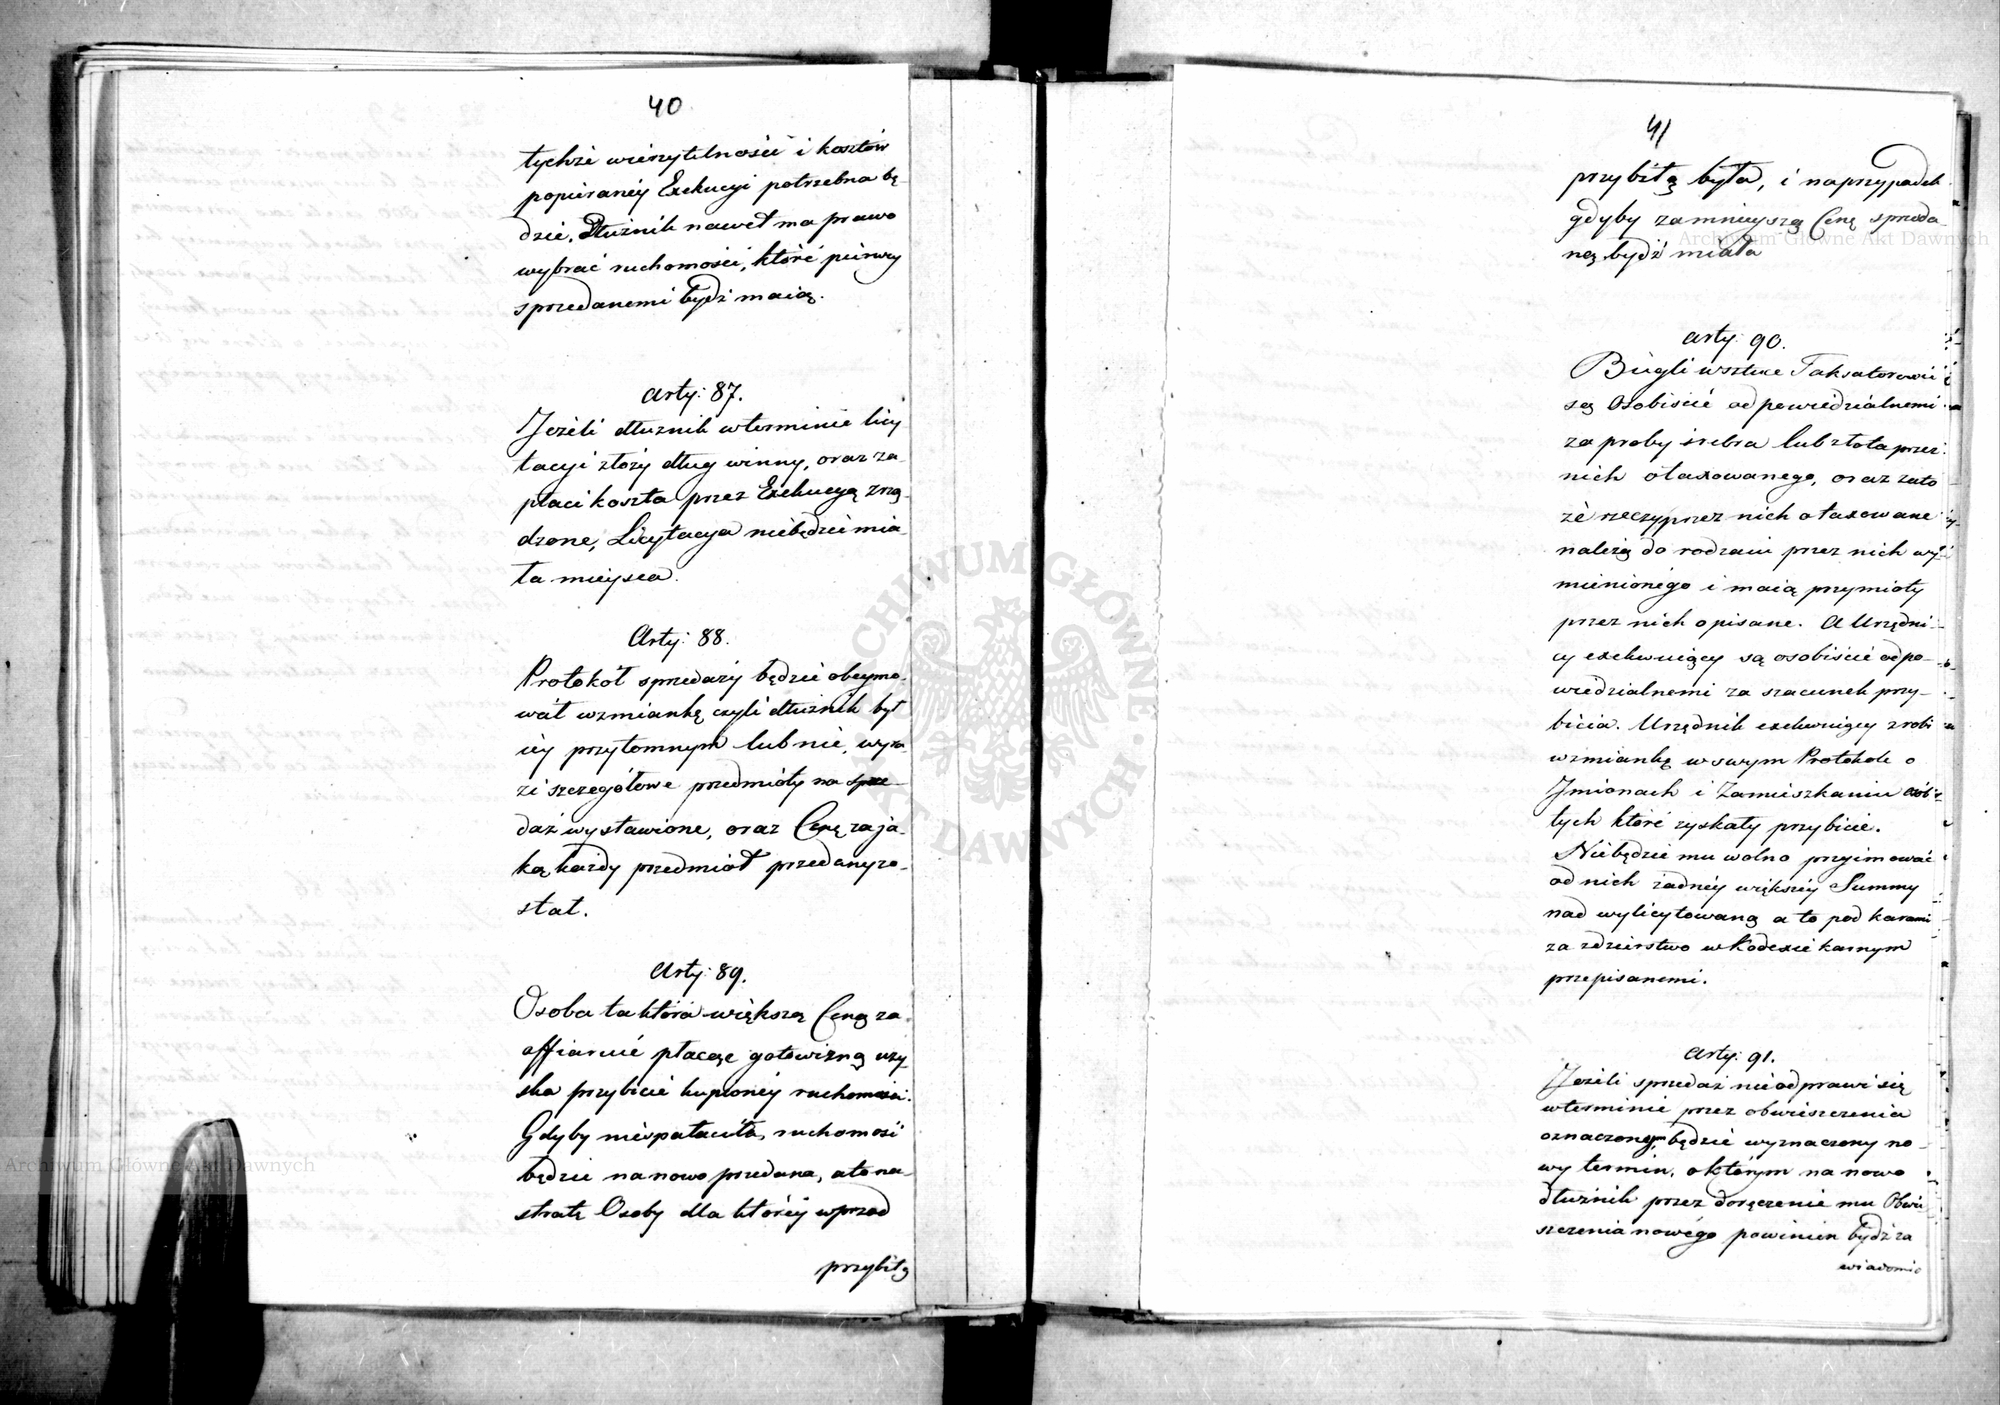 40
tychże wierzytelności i kosztów
popieranéy Exekucyi potrzebna bę-
dzie, Dłużnik nawet ma prawo
wybrać ruchomości, któré pierwey
sprzedanemi bydź maią.
Arty: 87.
Jeżeli dłużnik w terminie licy
tacyi złoży dług winny, oraz za-
płaci koszta przez Exekucyą zrzą-
dzone, Licytacya niebędzie mia-
ła mieysca.
Arty: 88.
Protokół sprzedaży będzie obeymo-
wał wzmiankę czyli dłużnik był
iéy przytomnym lub nie, wyra-
zi szczegółowe przedmioty na sprze-
daż wystawione, oraz Cenę za ja-
ką każdy przedmiot przedany zo-
stał.
Arty: 89.
Osoba ta która większą Cenę za-
offiaruié płacąc gotowizną uzy
ska przybicié kupionéy ruchomości.
Gdyby niezpłaciła, ruchomość
będzie na nowo przedana, a to na-
stratę Osoby dla któréy wprzod
przybitą
41
przybitą była, i naprzypadek
gdyby zamnieyszą Cenę sprzeda
ną bydź miała
Arty: 90.
Biegli w sztuce Taksatorowié
są Osobiscié odpowiedzialnemi
za proby srebra lub złota przez
nich otaxowanego, oraz zato
zé rzeczy przez nich otaxowane
należą do rodzaiu przez nich wy
mienionégo i maią przymioty
przez nich opisane. A Urzędni-
cy exekwuiący są osobiscié odpo-
wiedzialnemi za szacunek przy-
bicia. Urzędnik exekwuiący zrobi
wzmiankę w swym Protokole o
Imionach i Zamieszkaniu osób
tych któré zyskały przybicie.
Niebędzie mu wolno przyimować
od nich żadnéy większéy Summy
nad wylicytowaną a to pod karami
za zdzierstwo w Kodexié karnym
przepisanemi.
Arty: 91.
Jeżeli sprzedaż nieodprawi się
w terminie przez obwieszczenia
oznaczonym będzie wyznaczony no-
wy termin, o którym na nowo
dłużnik przez doręczenie mu Obwie
szczenia nowégo powinien bydź za
wiadomio
Archiwum Główne Akt Dawnych
Archiwum Główne Akt Dawnych
ARCHIWUM GŁÓWNE AKT DAWNYCH